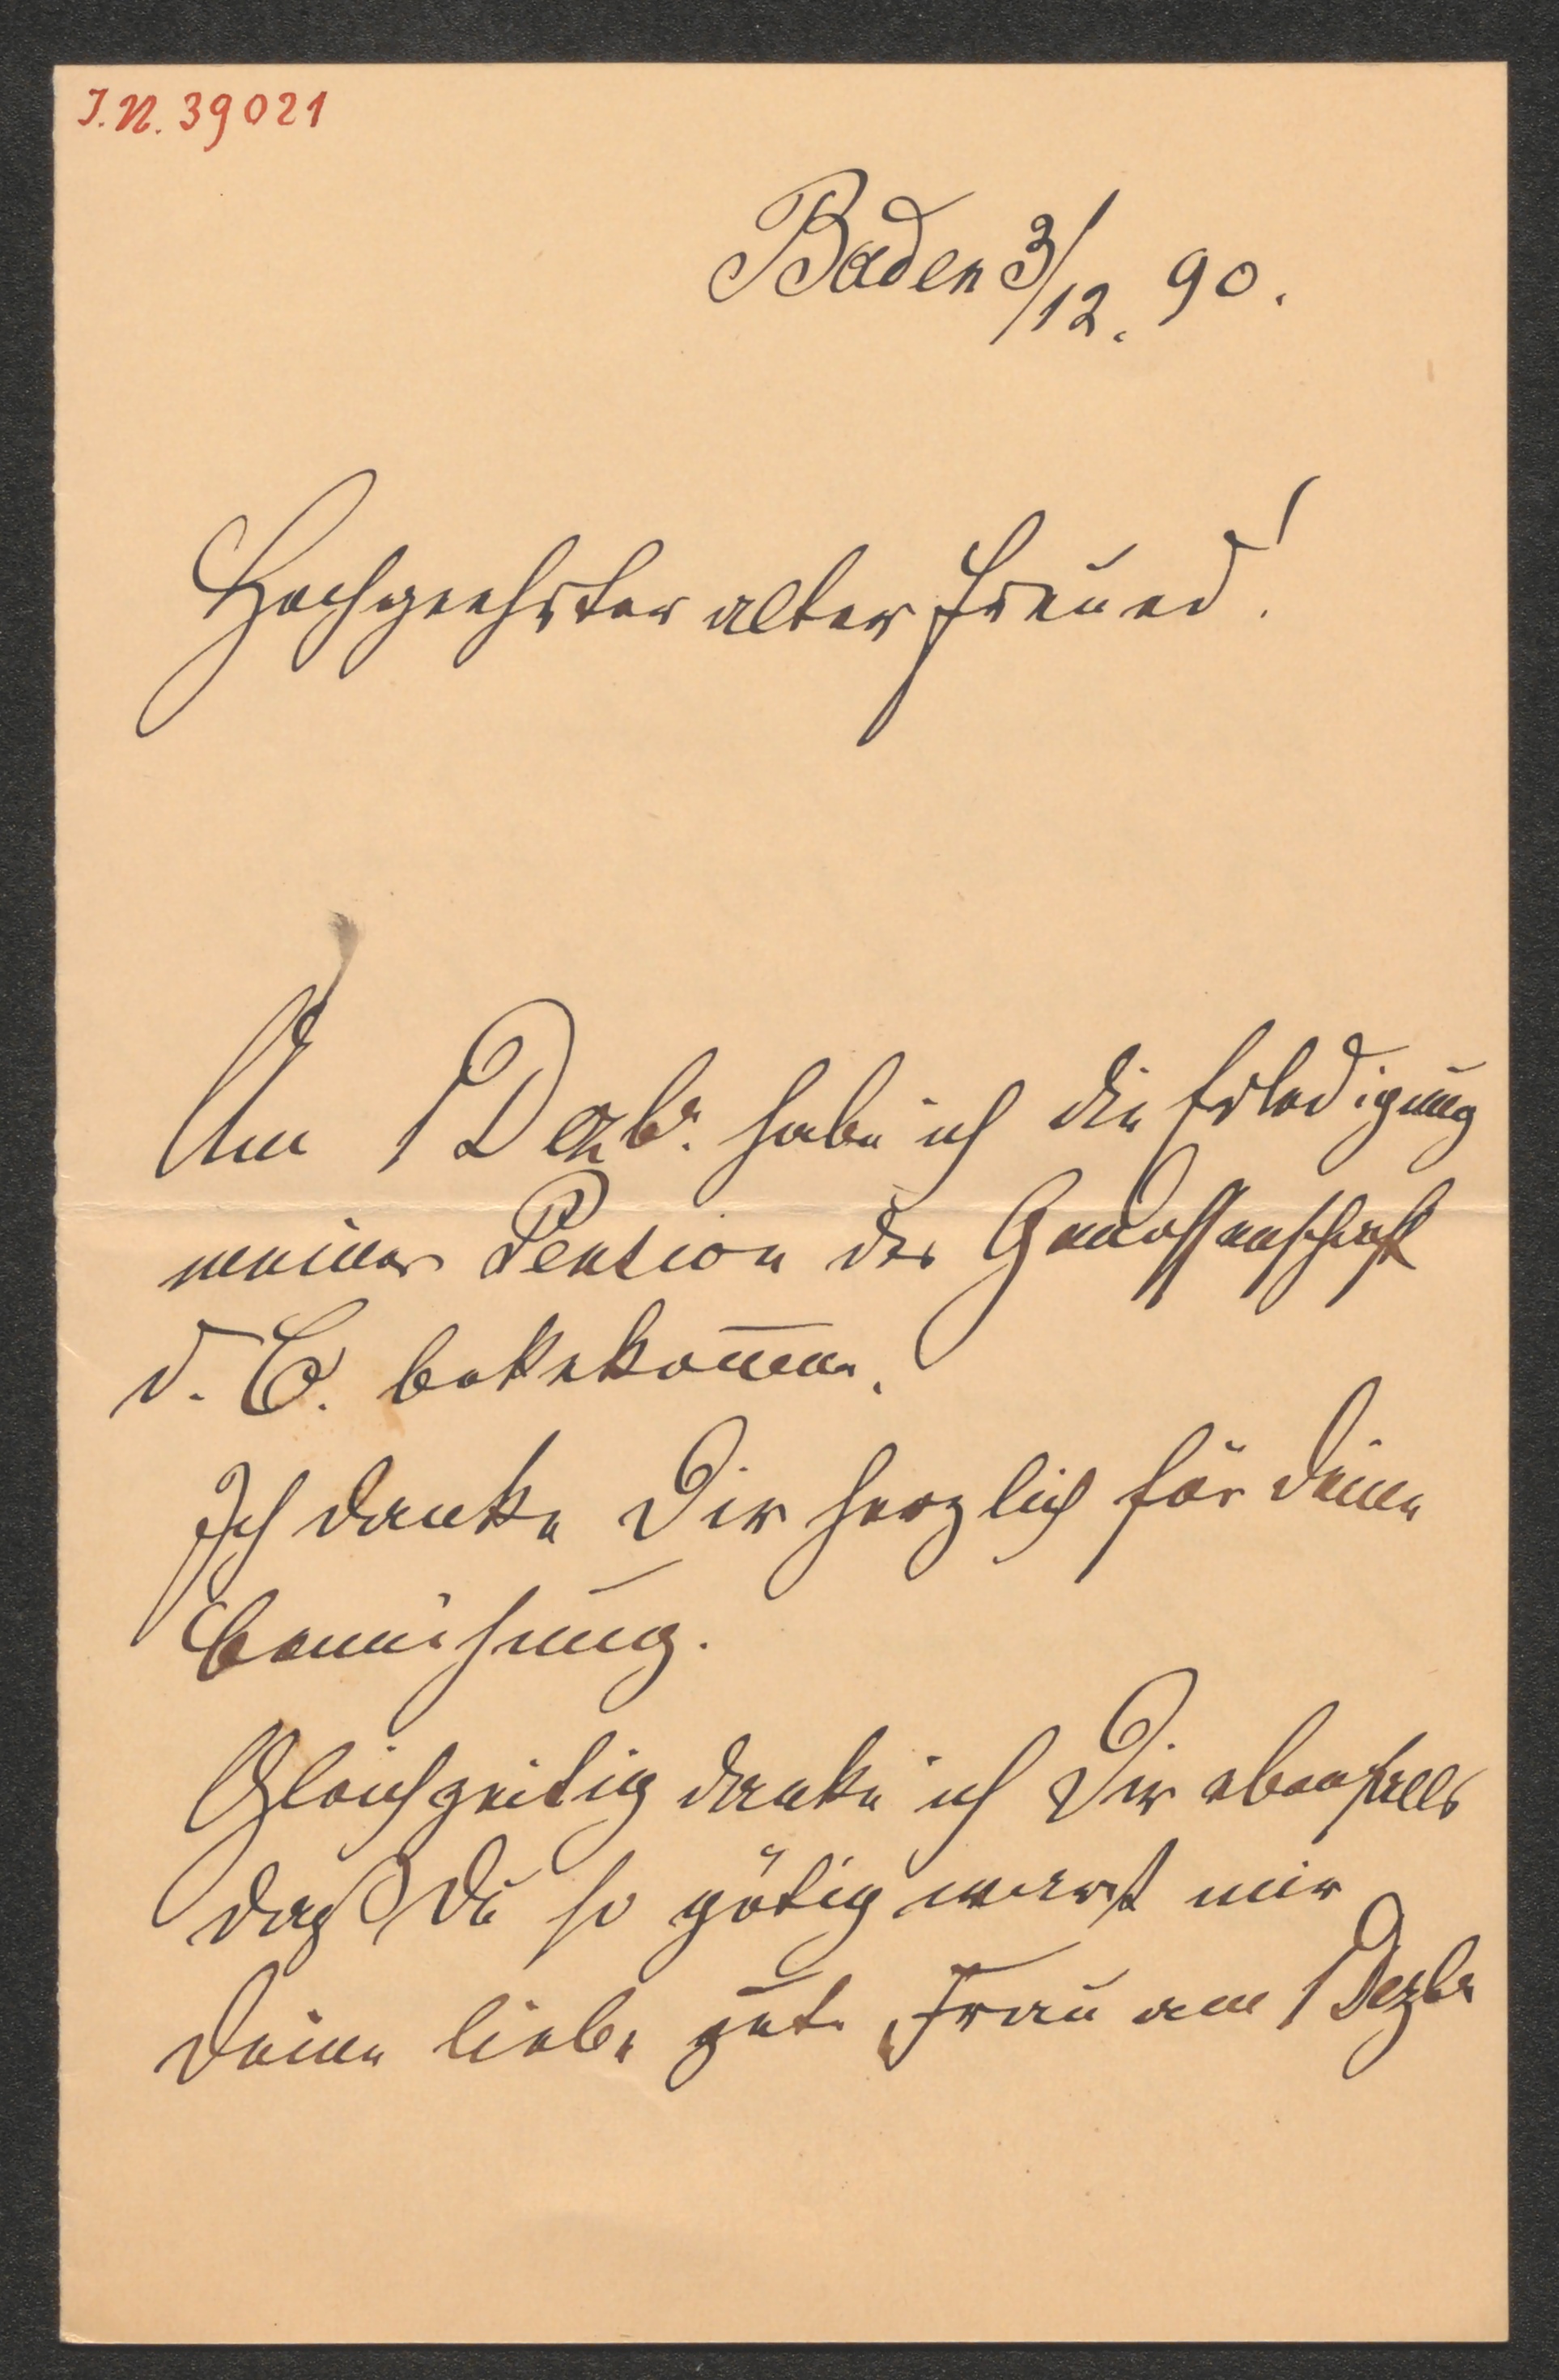 I.N. 39021
Baden 3/12. 90.
Hochgeehrter alter Freund!
Am 1 Dezbr. habe ich die Erledigung
meiner Pension der Genossenschaft
d. C. bekekommen.
Ich danke Dir herzlich für Deine
Bemühung.
Gleichzeitig danke ich Dir ebenfalls
daß Du so gütig warst mir
Deine liebe gute Frau am 1 Dezbr